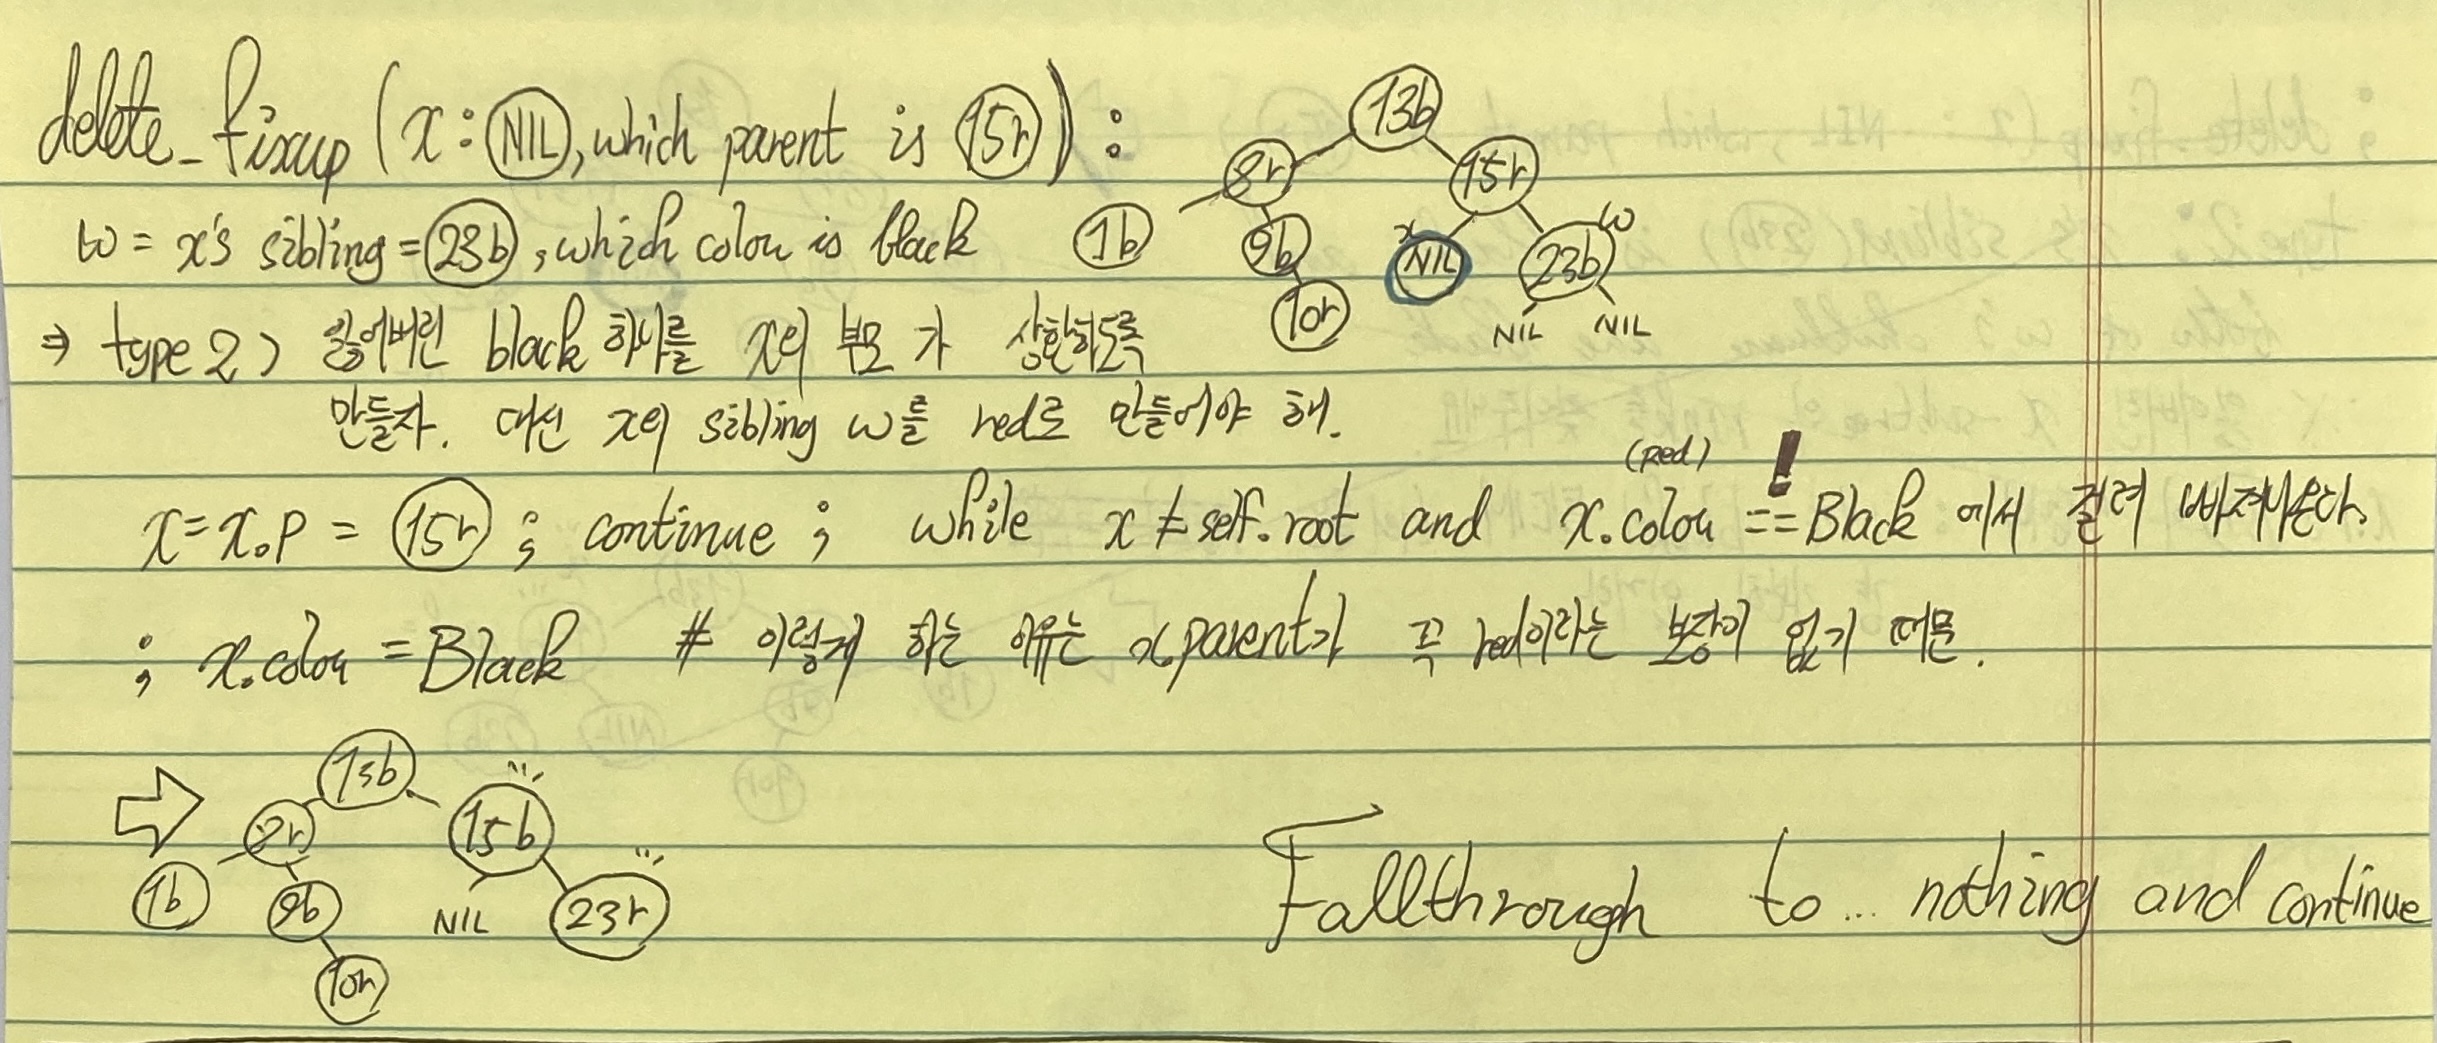 delete_fixup (x: NIL, which parent is 15r) :
w = x's sibling = 23b, which colou is black
13b
8r 15r
1b 9b x NIL w 23b
10r NIL NIL
⇒ type 2) 잃어버린 black 하나를 x의 부모가 상환하도록
만들자. 대신 x의 sibling w를 red로 만들어야 해.
(Red) !
x = x.p = 15r ; continue ; while x ≠ self.root and x.colou == Black 에서 걸려 빠져나온다.
; x.colou = Black # 이렇게 하는 이유는 x.parent가 꼭 red이라는 보장이 없기 때문.
13b
8r 15b
1b 9b NIL 23r
10r
Fallthrough to... nothing and continue